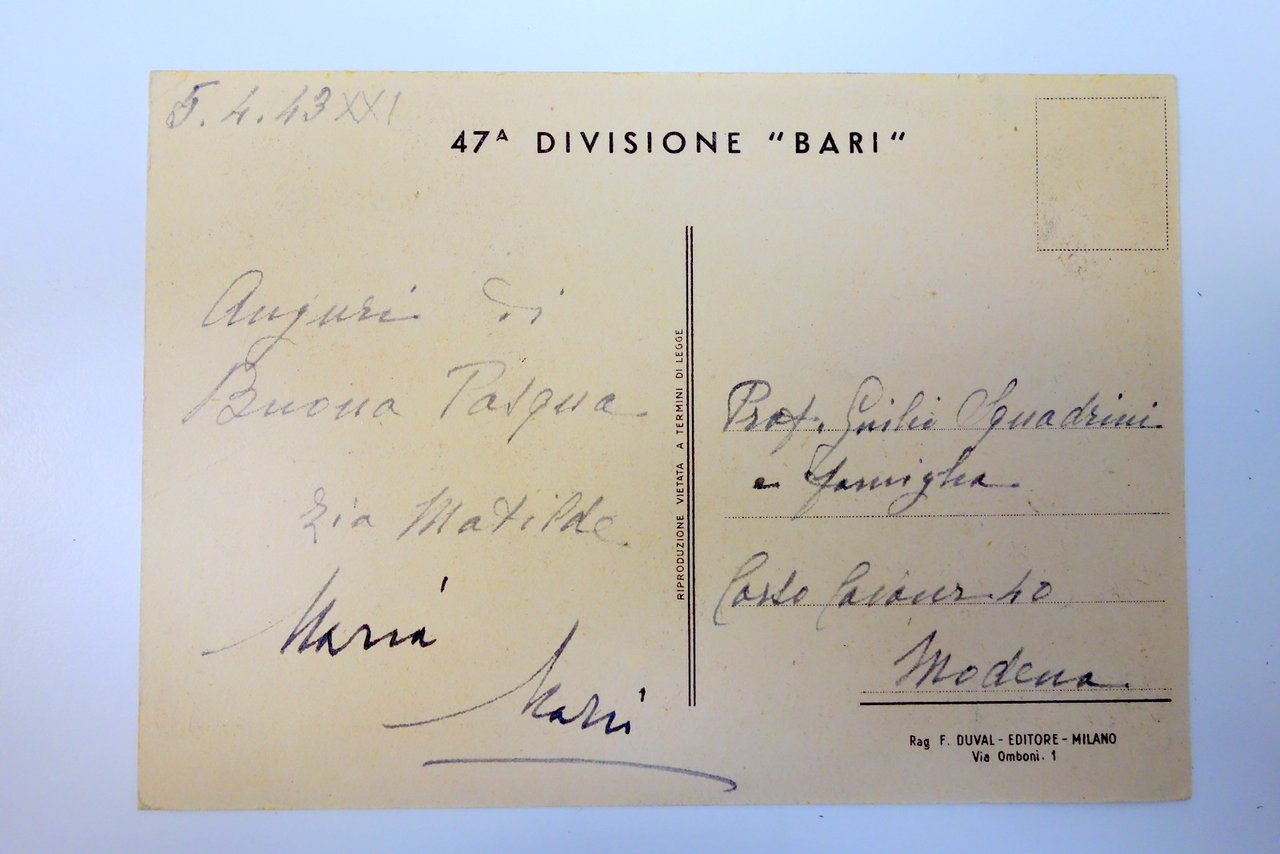 5.4.43 XXI
47ᴬ DIVISIONE "BARI"
Auguri di
Buona Pasqua
Zia Matilde
Maria
Mari
RIPRODUZIONE VIETATA A TERMINI DI LEGGE
Prof. Giulio Squadrini
e famiglia
Corso Cavour 40
Modena
Rag F. DUVAL - EDITORE - MILANO
Via Omboni. 1